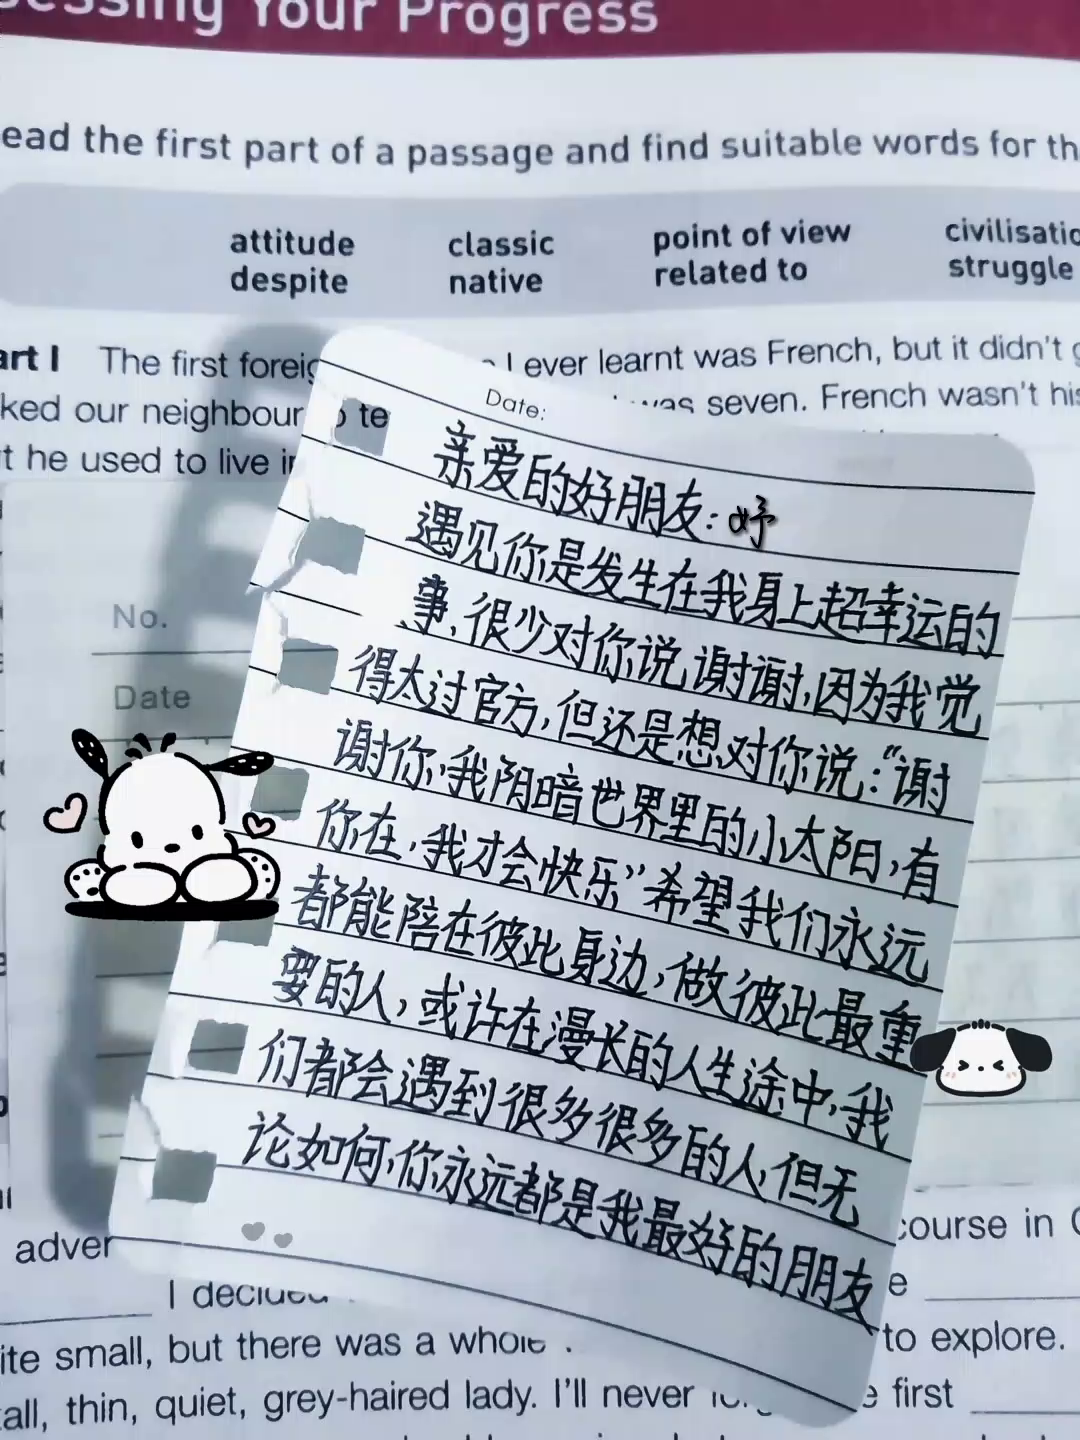 Your Progress
ead the first part of a passage and find suitable words for th
attitude classic point of view
despite native related to struggle
art I The first I ever learnt was French, but it didn't
ked our neighbour te
was seven. French wasn't his
t he used to live
Date:
亲爱的好朋友：妤
遇见你是发生在我身上超幸运的
事，很少对你说谢谢，因为我觉
得太过官方，但还是想对你说：“谢
谢你，我阴暗世界里的小太阳，有
你在，我才会快乐”希望我们永远
都能陪在彼此身边，做彼此最重
要的人，或许在漫长的人生途中，我
们都会遇到很多很多的人，但无
论如何，你永远都是我最好的朋友
No.
Date
course in
adver
I decided
ite small, but there was a whole to explore.
all, thin, quiet, grey-haired lady. I'll never first